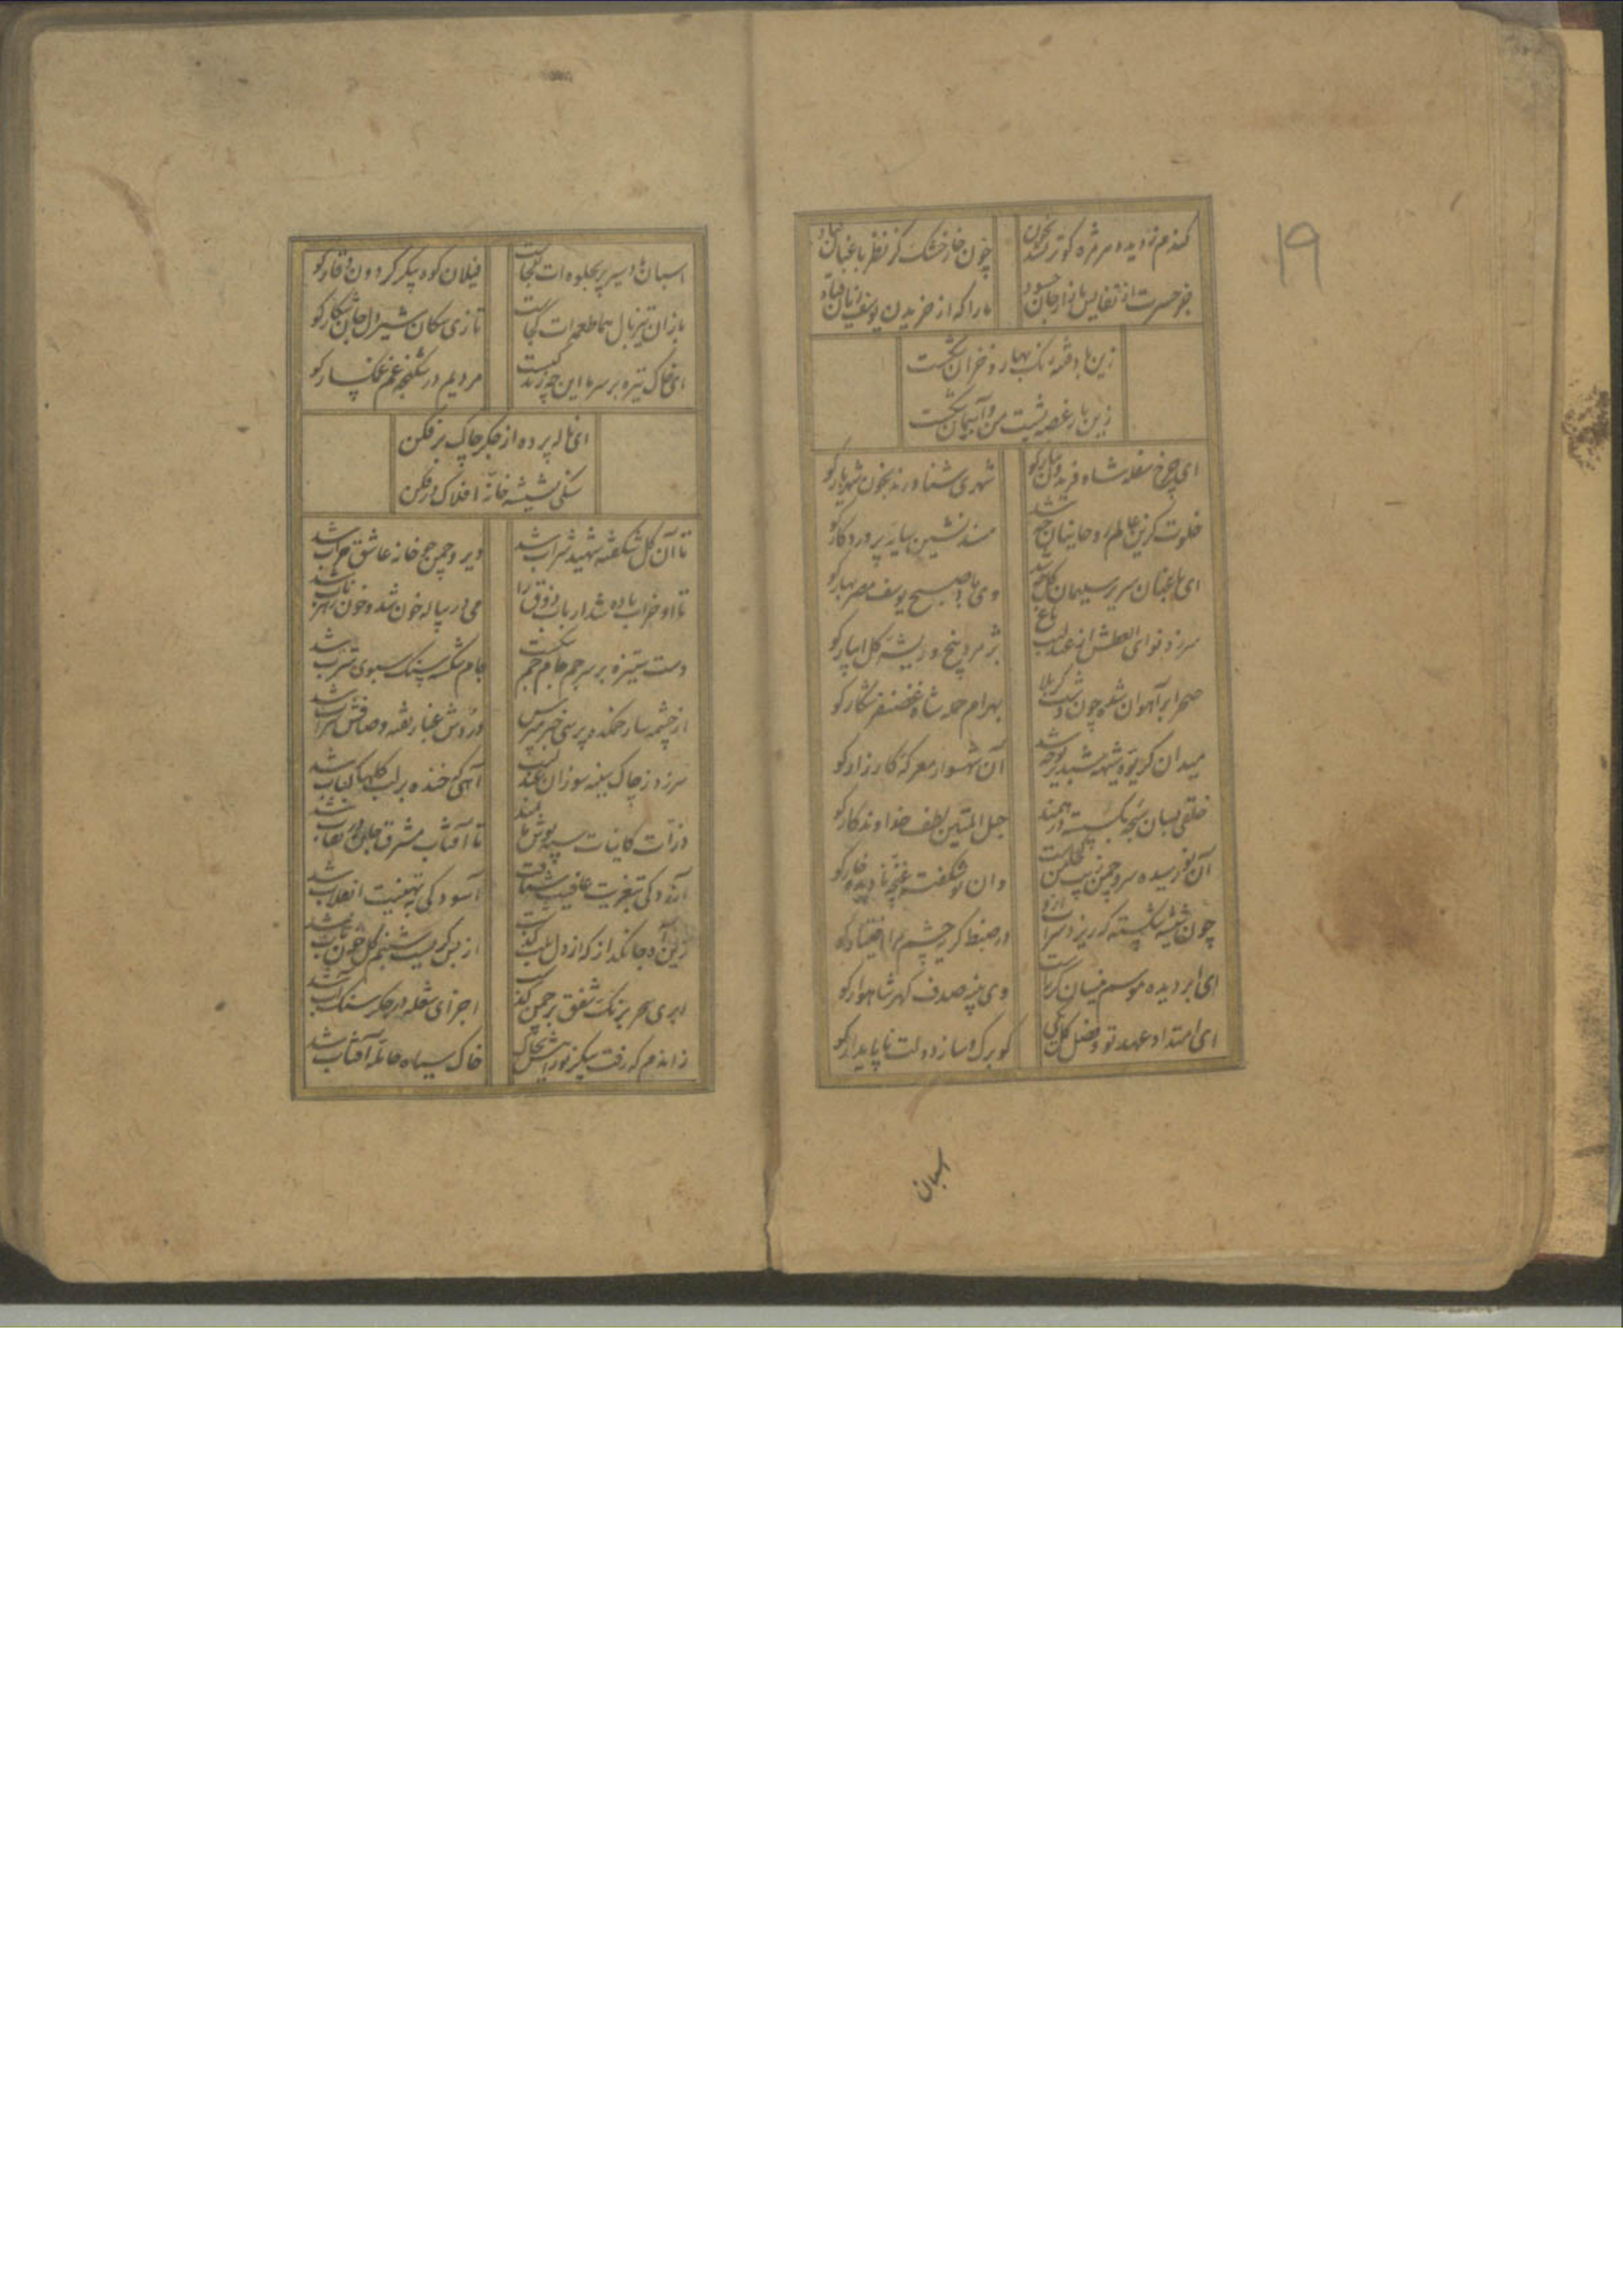 ۱۹
کندم ز دیده هر مژه کو تر نشد بخون
چون خار خشک کز نظر باغبان فتاد
جز حسرت از نفایس بازار جان چسود
ما را که از خریدن یوسف زیان فتاد
زین بادفتنه رنگ بهار و خزان شکست
زین بار غصه پشت من و آسمان شکست
ای چرخ سفله شاه فریدون تبار کو
شهری شناورند بخون شهریار کو
خلوت گزین عالم روحانیان چه شد
مسند نشین سایه پروردکار کو
ای باغبان سریر سلیمان گل چه شد
وی باد صبح یوسف مصر بهار کو
سر زد نوای العطش از عندلیب باغ
پژمرد بیخ و ریشه گل آبیار کو
صحرا بر آهوان شده چون دشت کربلا
بهرام حمله شاه غضنفر شکار کو
میدان گریوه شیهه شبدیز نوحه شد
آن شهسوار معرکه کارزار کو
خلقی بسان سبحه بگسسته درهمند
حبل المتین لطف خداوندکار کو
آن نورسیده سرو چمن زیب کجاست
وان نوشکفته غنچه نادیده خار کو
چون شیشه شکسته که ریزد شراب ازو
در ضبط گریه چشم مرا اختیار کو
ای ابر دیده موسم نیسان گریه است
وی سینه صدف گهر شاهوار کو
ای امتداد عهد تو و فصل گل یکی
کو برگ و ساز دولت ناپایدار کو
اسبان
اسبان باد سیر پر بجلوه ات کجاست
فیلان کوه پیکر گردون وقار کو
بازان تیز بال هما طعمه ات کجاست
تازی سکان شیر دل جان شکار کو
ای خاک تیره بر سر ما این چه زندگیست
مردیم در شکنجه غم غمگسار کو
ای ناله پرده از جگر چاک بر فکن
سنگی بشیشه خانه افلاک در فکن
تا آن گل شکفته شهید شراب شد
دیر و چمن چو خانه عاشق خراب شد
تا او خراب باده شد ارباب ذوق را
می در پیاله خون شد و خون زهر ناب شد
دست ستیزه بر سر جم جام جم شکست
جام شکر بسنگ سبوی شراب شد
از چشمه سار خنده پرسی خبر مپرس
دردش غبار تفته و صافش سراب شد
سر زد ز چاک سینه سوزان عندلیب
آهی که خنده بر لب گلها کباب شد
ذرات کاینات سیه پوش ماتمند
تا آفتاب مشرق جان در نقاب شد
آزردگی بتعزیت عافیت شتافت
آسودگی به تهنیت انقلاب شد
زین آه جانگداز که از دل بلب گذشت
از بس گریست شبنم گل خون ناب شد
ابری سحر برنگ شفق بر چمن گذشت
اجزای شعله در جگر سنگ آب شد
زاندم که رفت پیکر نورانیش بخاک
خاک سیاه حامله آفتاب شد